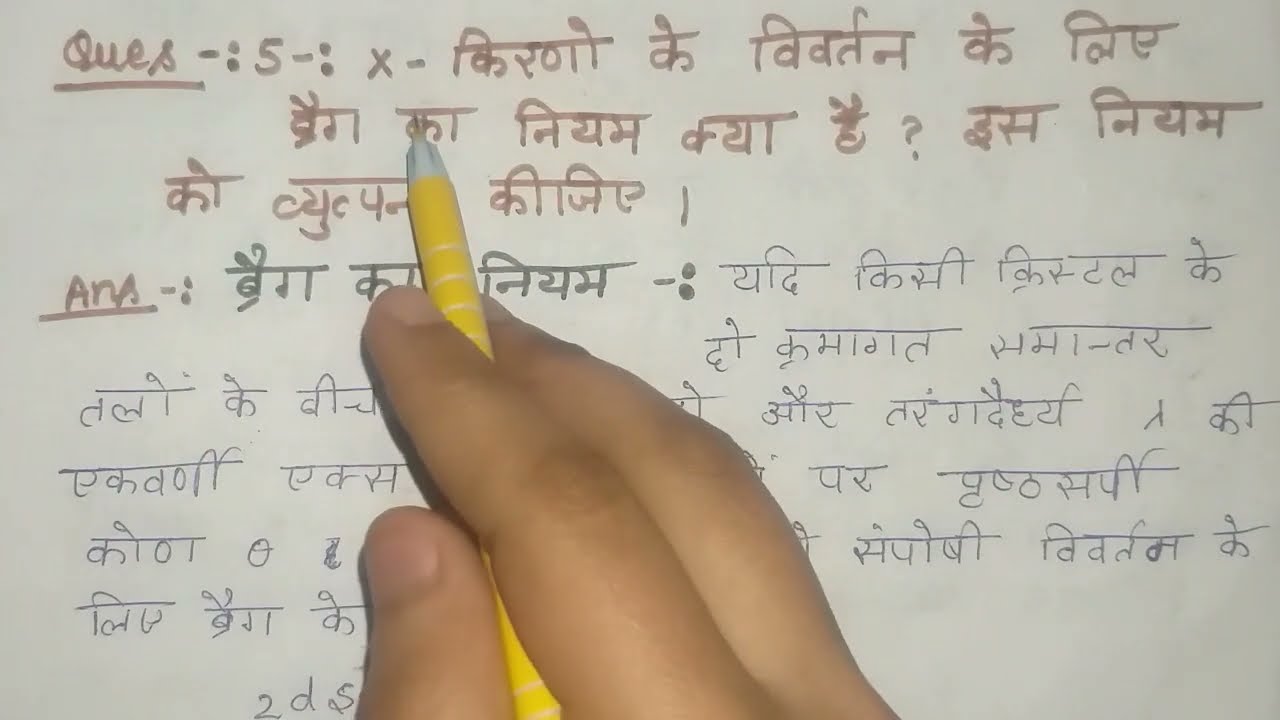 Ques -: 5 -: x - किरणो के विवर्तन के लिए
ब्रैग का नियम क्या है ? इस नियम
को व्युत्पन कीजिए ।
Ans -: ब्रैग का नियम -: यदि किसी क्रिस्टल के
दो क्रमागत समान्तर
तलों के बीच और तरंगदैर्ध्य λ की
एकवर्णी एक्स पर पृष्ठसर्पी
कोण θ संपोषी विवर्तन के
लिए ब्रैग के
2d